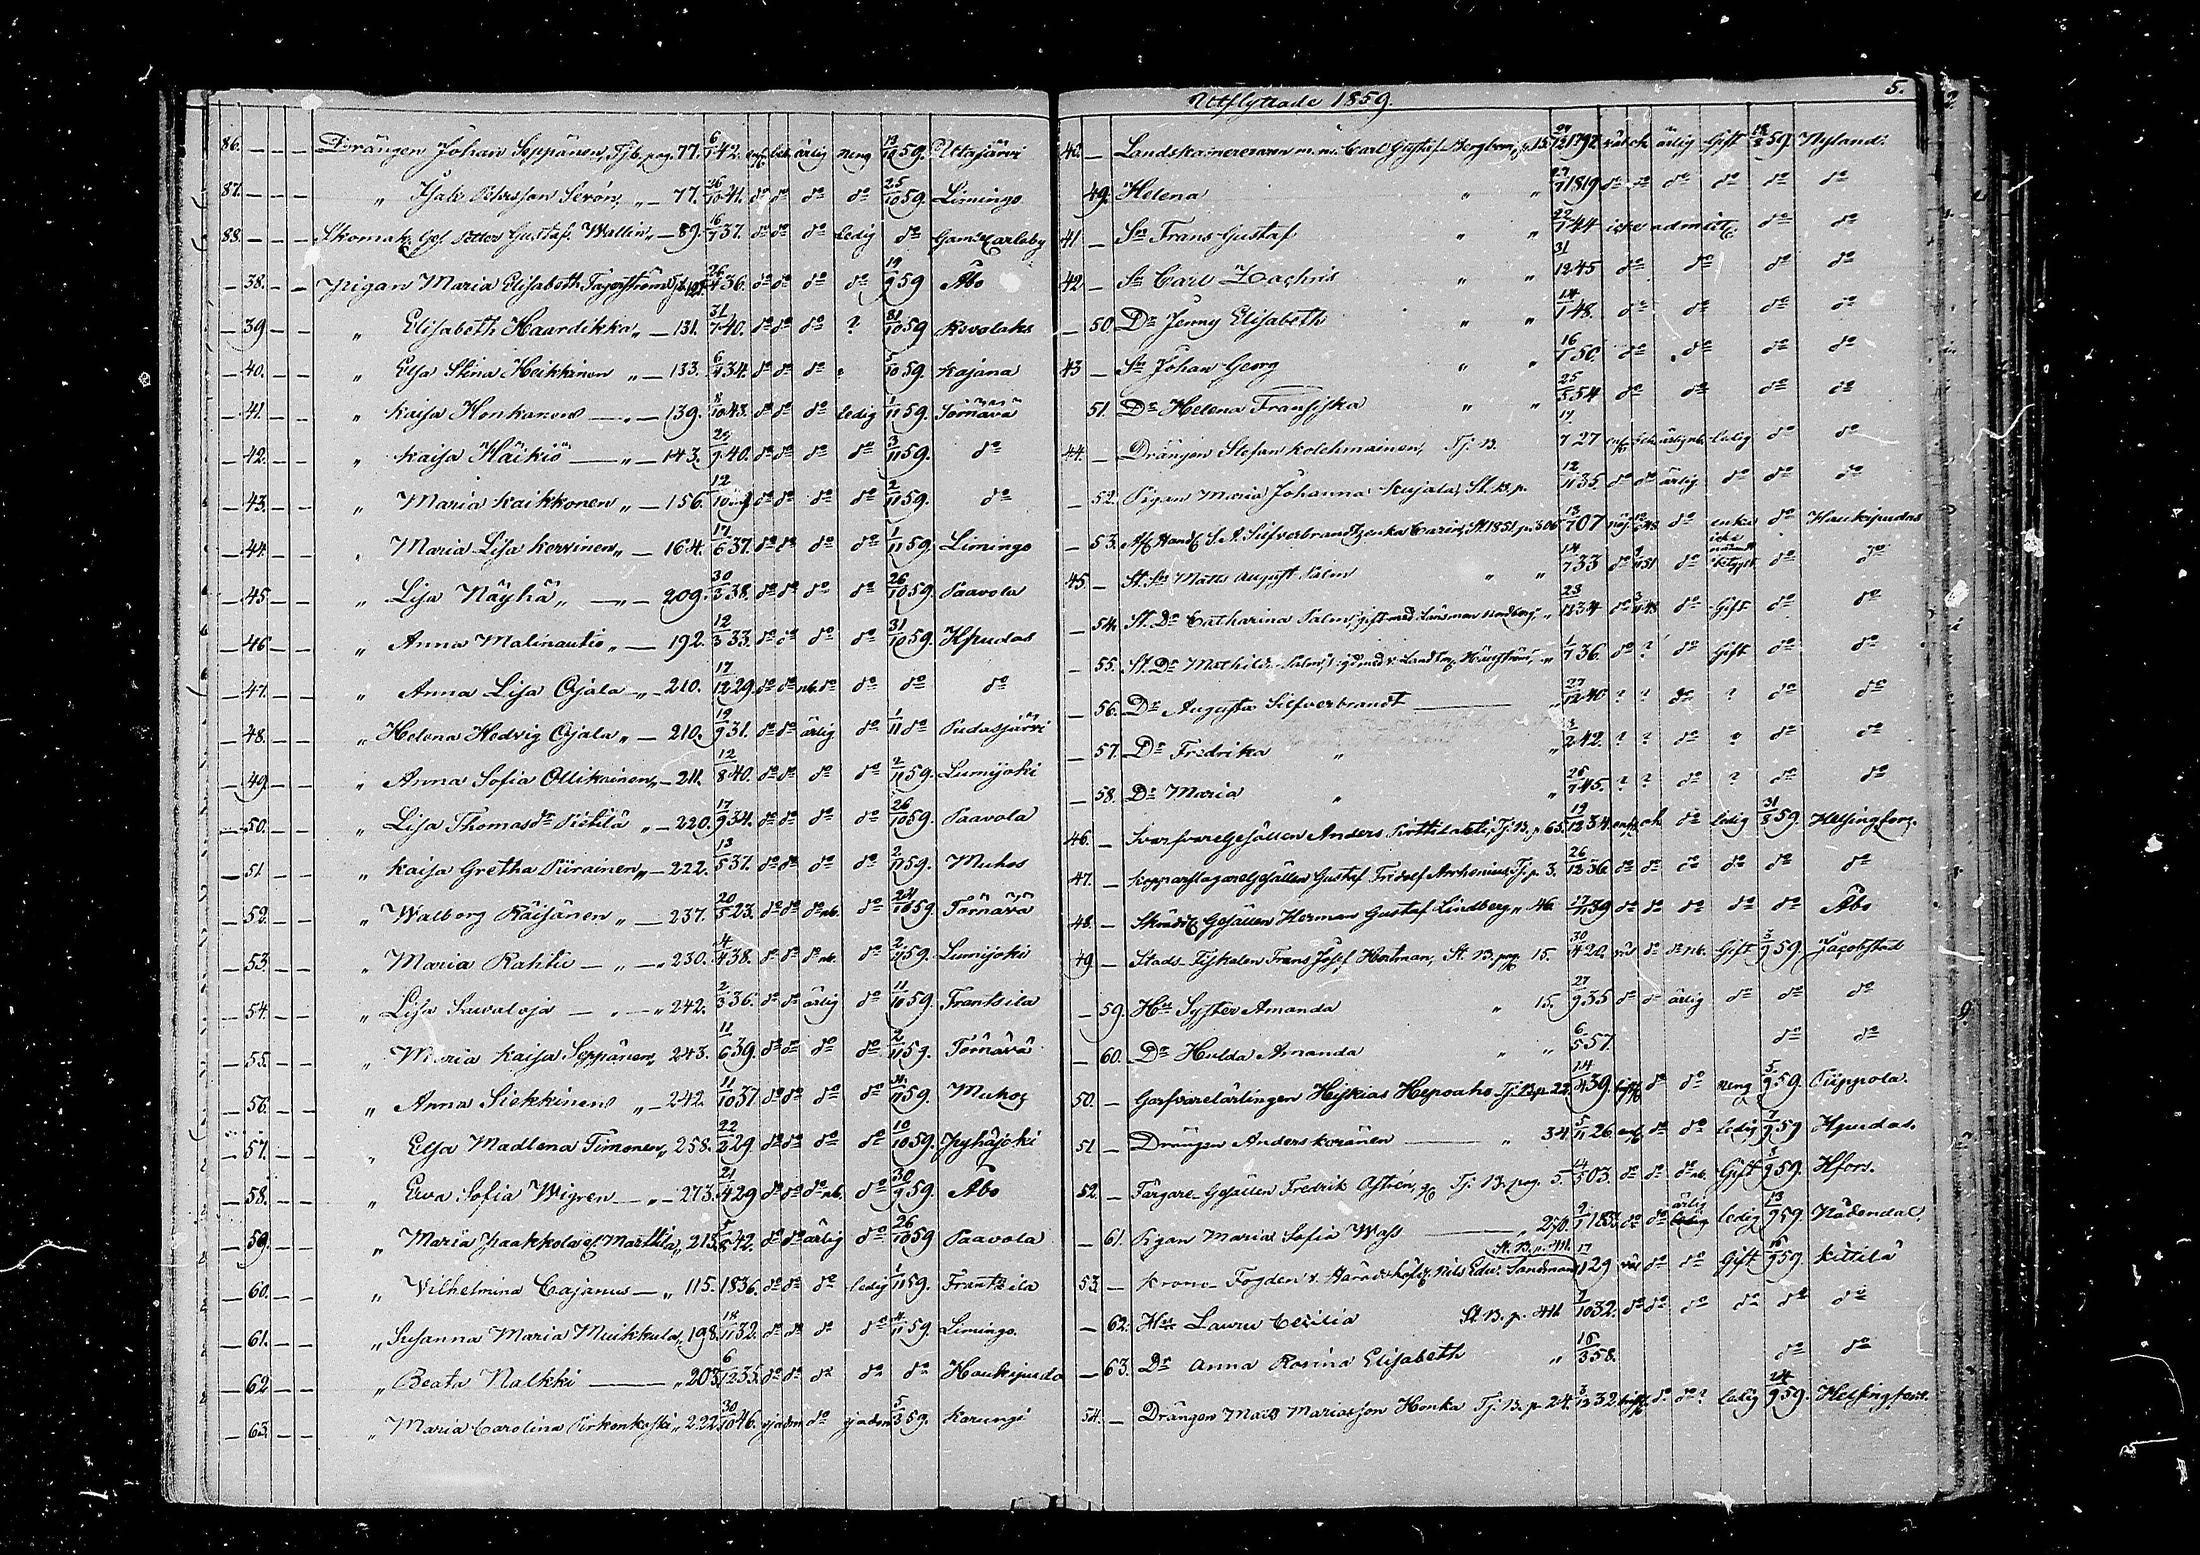 86. — — — Drängen Johan Seppänen, Tj.b. pag. 77. 6/7 42. enf. bek ärlig neng 13/10 59. Uttajärvi
87. — — — " Isak Petersson Serén, " — 77. 26/10 41. do do do do 25/10 59. Limingo
88. — — — Skomak. Ges. Petter Gustaf Wallin " — 89. 16/7 37. do do do ledig do Gamla Carleby
— 38. — — Pigan Maria Elisabeth Fagerström 26/4 36. do do do do 19/9 59 Åbo
— 39 — — " Elisabeth Haardikka " — 131. 31/7 40. do do do ? 31/10 59
— 40. — — " Elsa Stina Heikkinen " — 133. 6/4 34. do do do " 5/10 59. Kajana
— 41. — — " Kaisa Honkanen — " — 139. 8/10 43. do do do ledig 1/11 59. Törnävä
— 42. — — " Kaisa Häikiö — " — 143. 40. do do do do 3/11 59. do
— 43. — — " Maria Kaikkonen " — 156. 12/10 do do do do 2/11 59. do
— 44. — — " Maria Lisa Kervinen " — 164. 17/6 37. do do do do 1/11 59. Limingo
— 45. — — " Lisa Näyhä " — " — 209. 30/3 38. do do do do 26/10 59. Paavola
— 46 — — " Anna Malinautio " — 192. 12/3 33. do do do do 31/10 59. Hpudas
— 47. — — " Anna Lisa Ojala — " — 210. 17/12 29. do do nb. do do do do
— 48. — — " Helena Hedvig Ojala " — 210. 19/9 31. do do ärlig do 1/11 do Pudasjärvi
— 49. — — " Anna Sofia Ollikainen " — 211. 12/8 40. do do do do 2/11 59. Lumijoki
— 50. — — " Lisa Thomasdr Pietilä " — 220. 17/9 34. do do do do 26/10 59 Paavola
— 51 — — " Kaisa Gretha Piirainen " — 222. 13/5 37. do do do do 2/11 59. Muhos
— 52. — — " Walborg Räisänen " — 237. 20/5 23. do do do nb. do 24/10 59. Törnävä
— 53. — — " Maria Rahtu — " — " 230. 4/4 38. do do do nb. do 2/11 59. Lumijoki
— 54. — — " Lisa Sawaloja — " — " 242. 2/3 36. do do ärlig do 11/10 59. Frantsila
— 55. — — " Maria Kaisa Seppänen " 243. 11/6 39. do do do do 2/11 59. Törnävä
— 56. — — " Anna Siekkinen " — 242. 11/10 37 do do do do 59. Muhos
— 57. — — " Elsa Madlena Timonen " 258. 22/2 29. do do do do 10/10 59. Pyhäjoki
— 58. — — " Ewa Sofia Wigren — " — 273. 21/4 29 do do do nb. do 30/9 59. Åbo
— 59. — — " Maria Jaakkola el. Marttila, 213. 5/8 42. do do ärlig do 26/10 59 Paavola
— 60. — — " Vilhelmina Cajanus — " 115. 1836. do do do ledig 1/11 59. Frantsila
— 61. — — " Susanna Maria Muikkula " 198. 18/11 32. do do do do 4/11 59. Limingo.
— 62 — — " Beata Nalkki — " 203. 6/12 35. do do do do do Haukipudas
— 63. — — " Maria Carolina 222. 30/10 46. ej adm do ej adm 5/3 59. Karungi
Utflyttade 1859. 5.
40. — Landskamereraren m.m. Carl Gustaf Bergbom, 15. 24/12 1792 väl ok ärlig Gift 59. Nyland.
— 49. Helena " " 27/7 1819 do do do do do do
41 — Sn Frans Gustaf " " 22/7 44 icke admitt. do do
42 — Sn Carl Zachris " " 31/12 45 do do do do
— 50. Dr Jenny Elisabeth " " 14/1 48. do do do do
43 — Sn Johan Georg " " 16/ 50. do do do do
— 51. Dr Helena Fransiska " " 25/5 54 do do do do
44. — Drängen Stefan Kolehmainen, Tj. B. 17/7 27 enf. bek ärlig nb. ledig do do
— 52. Pigan Maria Johanna Kujala, St. B. p. 12/11 35. do do ärlig do do do
— 53. Silfverbrandts enka Carin, St. 1851. p. 306 13/7 07 nöj. do enka do Haukipudas
45. — St. Sn Matts August Salm " " 14/7 33 do 9/ 51 do icke betygat do do
— 54. St. Dr Catharina Salm, gift med Länsman Nordberg, " 23/12 34 do do Gift do do
— 55. St. Dr Mathilda Salm, 1/7 36. do ? do Gift do do
— 56. Dr Augusta Silfverbrandt — " 27/12 40 ? ? do ? do do
— 57. Dr Fredrika " " 3/2 42. ? ? do ? do do
— 58. Dr Maria " " 25/7 45. ? ? do ? do do
46. — Svarfvaregesällen Anders Pirttilahti, Tj. B. p. 65. 19/12 34. enf. ok do ledig 31/8 59 Helsingfors.
47. — Kopparslagaregesällen Gustaf Fridolf Arrhenius Tj. p. 3. 26/12 36. do do do do do do
48. — Skrädd. Gesällen Herman Gustaf Lindberg " 46. 17/11 39 do do do do do Åbo
49. — Stads Fiskalen Frans Josef Hertman, St. B. pag. 15. 30/4 20. väl do do nb. Gift 3/9 59. Jacobstad
— 59. Hs Syster Amanda " 15. 27/9 35 do do ärlig do do do
— 60. Dr Hulda Amanda " " 6/5 57. do do
50. — Garfvarelärlingen Heiskias Hepoaho Tj. B. p. 22. 14/4 39. do do neng 5/9 59. Piippola.
51 — Drängen Anders Keränen — " 34. 5/11 26. enf. do do ledig 7/9 59 Hpudas.
52. — Färgare-Gesällen Fredrik Aftrén, Tj. B. pag. 5. 14/5 03. do do do nb. Gift 59. Hfors.
— 61. Pigan Maria Sofia Wass — " 270. 9/1 1833. do do ärlig ledig 13/9 59. Nådendal.
53. — Krono-Fogden v. Häradshöfd. Nils Edv. Sandman St. B. p. 411. 17/11 29 väl do do Gift 16/9 59. Kittilä
— 62. Hu Laura Cecilia St. B. p. 411 7/10 32. do do do do do do
— 63. Dr Anna Rosina Elisabeth " 16/3 58. do do
54. — Drängen Matts Mariasson Honka Tj. B. p. 24. 3/12 32 do do ? ledig 24/9 59. Helsingfors.